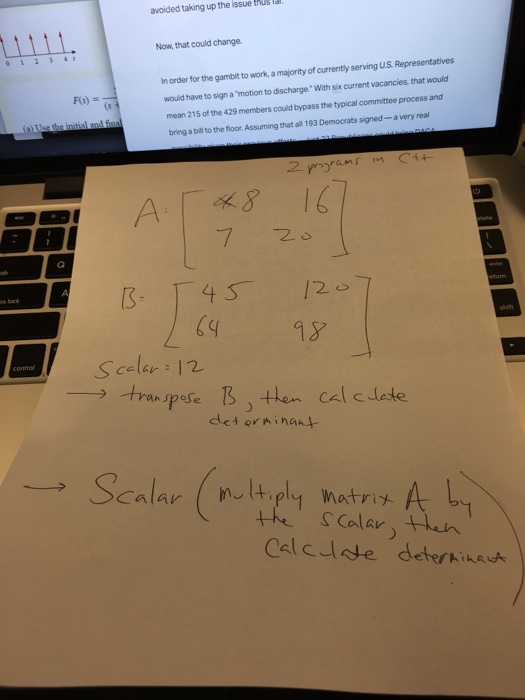 avoided taking up the issue thus far.
Now, that could change.
In order for the gambit to work, a majority of currently serving U.S. Representatives
would have to sign a "motion to discharge." With six current vacancies, that would
mean 215 of the 429 members could bypass the typical committee process and
bring a bill to the floor. Assuming that all 193 Democrats signed — a very real
0 1 2 3 4 t
F(s) =
(s +
(a) Use the initial and final
2 programs in C++
A: 8 16
7 20
B= 45 120
64 98
Scalar = 12
→ transpose B, then calculate
determinant
→ Scalar (multiply matrix A by
the scalar, then
Calculate determinant)
esc
Q
A
control
delete
enter
return
shift